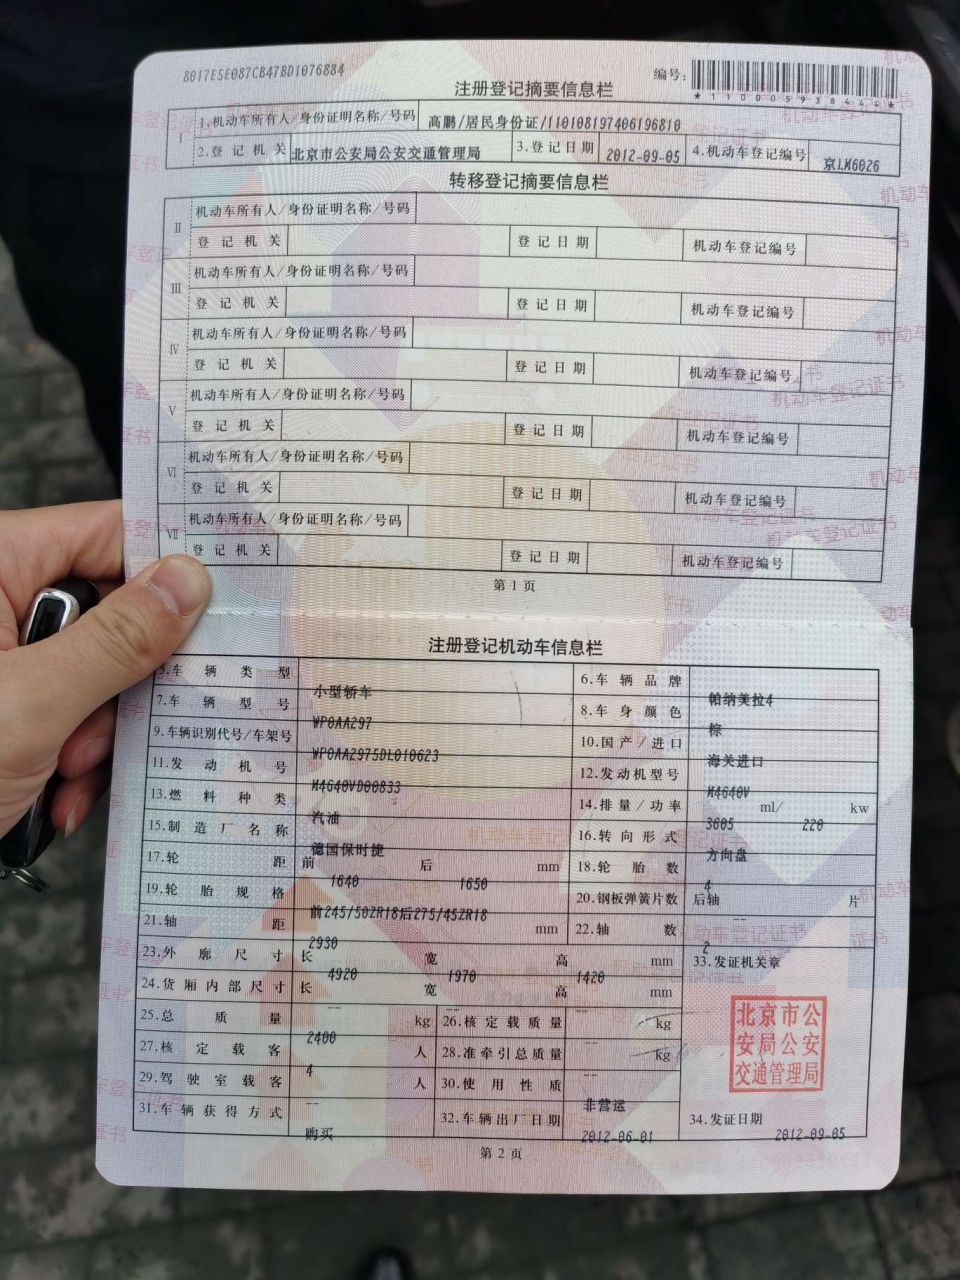 8017E5E087CB47BD1076884
注册登记摘要信息栏
编号:
*110005938444*
I
1.机动车所有人/身份证明名称/号码 高鹏/居民身份证/110108197406196810
2.登记机关 北京市公安局公安交通管理局 3.登记日期 2012-09-05 4.机动车登记编号 京LM6026
转移登记摘要信息栏
II 机动车所有人/身份证明名称/号码
登记机关 登记日期 机动车登记编号
III 机动车所有人/身份证明名称/号码
登记机关 登记日期 机动车登记编号
IV 机动车所有人/身份证明名称/号码
登记机关 登记日期 机动车登记编号
V 机动车所有人/身份证明名称/号码
登记机关 登记日期 机动车登记编号
VI 机动车所有人/身份证明名称/号码
登记机关 登记日期 机动车登记编号
VII 机动车所有人/身份证明名称/号码
登记机关 登记日期 机动车登记编号
第1页
注册登记机动车信息栏
5.车辆类型 小型轿车 6.车辆品牌 帕纳美拉4
7.车辆型号 WP0AA297 8.车身颜色 棕
9.车辆识别代号/车架号 WP0AA2975DL010623 10.国产/进口 海关进口
11.发动机号 M4640VD00833 12.发动机型号 M4640V
13.燃料种类 汽油 14.排量/功率 3605 ml/ 220 kw
15.制造厂名称 德国保时捷 16.转向形式 方向盘
17.轮距 前 1640 后 1650 mm 18.轮胎数 4
19.轮胎规格 前245/50ZR18后275/45ZR18 20.钢板弹簧片数 后轴 -- 片
21.轴距 2930 mm 22.轴数 2
23.外廓尺寸 长 4920 宽 1970 高 1420 mm 33.发证机关章
24.货厢内部尺寸 长 -- 宽 -- 高 -- mm
25.总质量 2400 kg 26.核定载质量 -- kg
27.核定载客 4 人 28.准牵引总质量 -- kg
29.驾驶室载客 -- 人 30.使用性质 非营运
31.车辆获得方式 购买 32.车辆出厂日期 2012-06-01 34.发证日期 2012-09-05
北京市公
安局公安
交通管理局
第2页